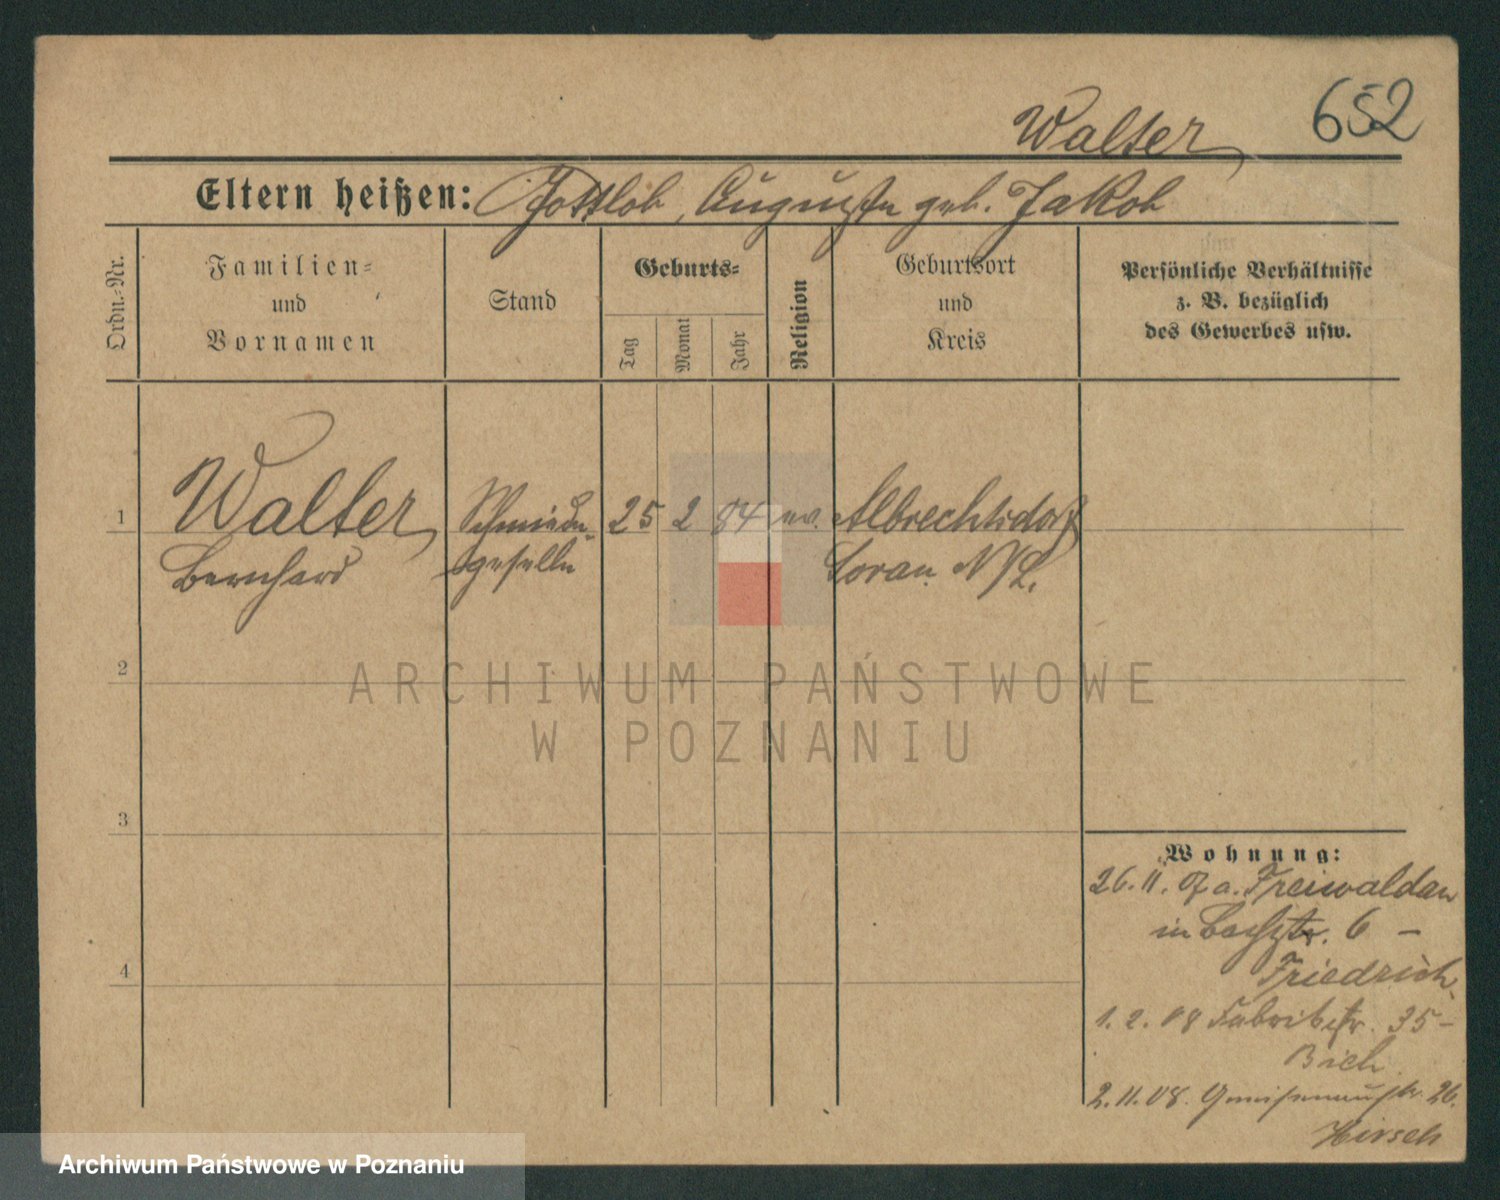 652
Walter
Eltern heißen: Gottlob, Auguste geb. Jakob
Ordn.-Nr.
Familien-
und
Vornamen
Stand
Geburts-
Tag
Monat
Jahr
Religion
Geburtsort
und
Kreis
Persönliche Verhältnisse
z. B. bezüglich
des Gewerbes usw.
1 Walter Schmiede- 25 2 84 ev. Albrechtsdorf
Bernhard geselle Soran N/L.
2
3
4
ARCHIWUM PAŃSTWOWE
W POZNANIU
Wohnung:
26. 11. 07 a. Freiwaldau
in Bachstr. 6 -
Friedrich
1. 2. 08 Fabrikstr. 35 -
Bich
2. 11. 08. Gneisenaustr. 26.
Hirsch
Archiwum Państwowe w Poznaniu